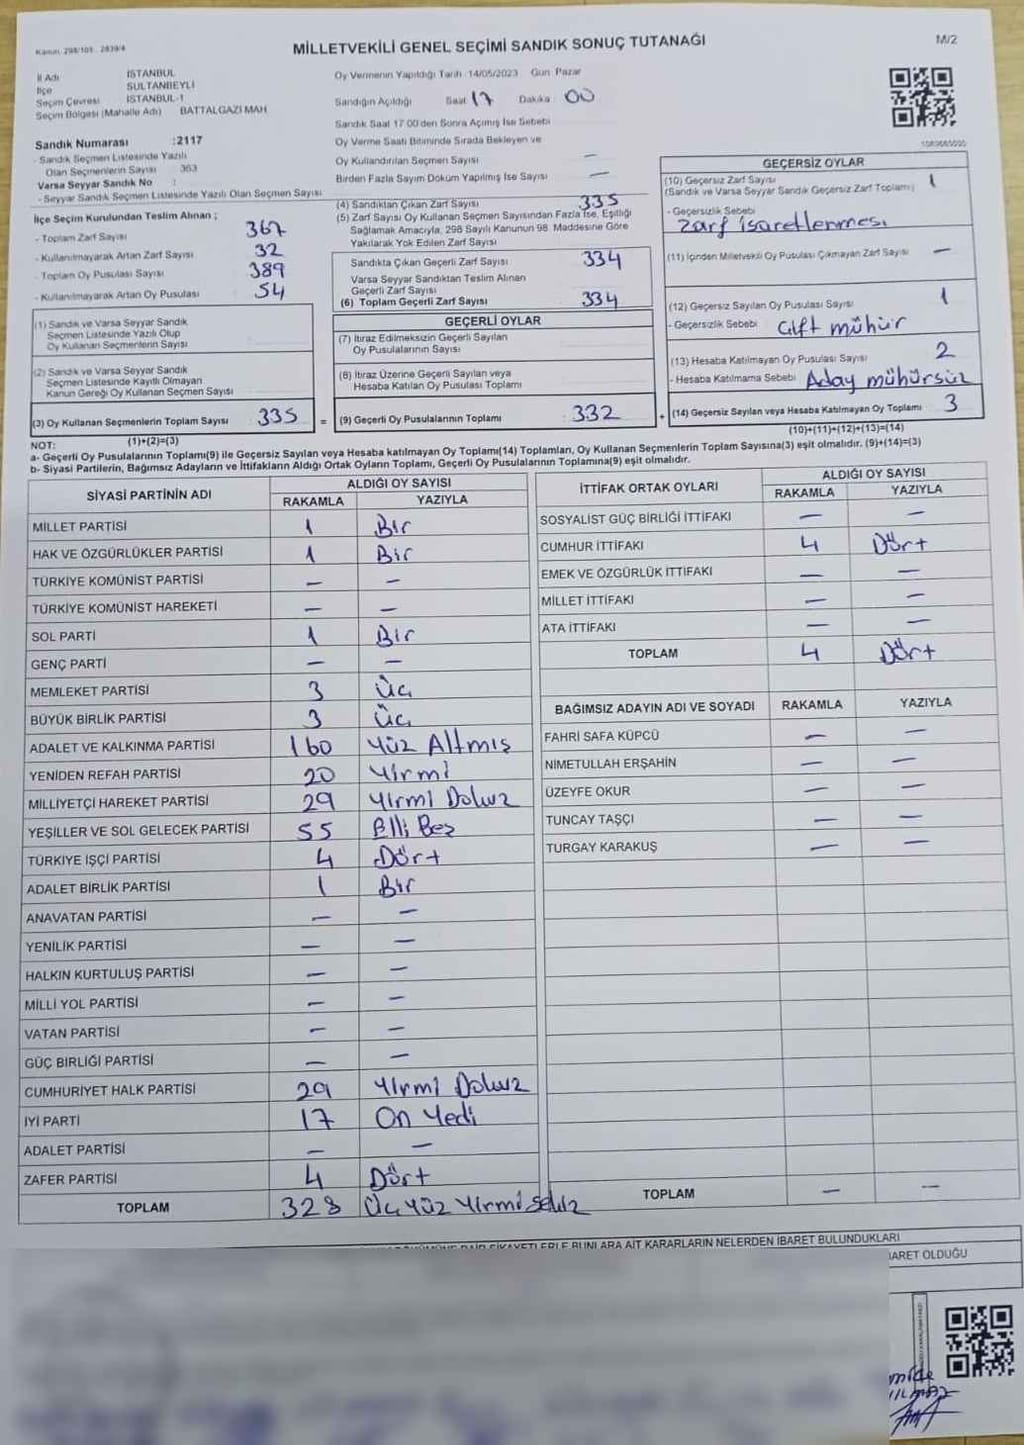 Kanun: 298/103 - 2839/4
MİLLETVEKİLİ GENEL SEÇİMİ SANDIK SONUÇ TUTANAĞI
M/2
İl Adı İSTANBUL
İlçe SULTANBEYLİ
Seçim Çevresi İSTANBUL-1
Seçim Bölgesi (Mahalle Adı) BATTALGAZİ MAH
Oy Vermenin Yapıldığı Tarih :14/05/2023 Gün: Pazar
Sandığın Açıldığı Saat 17 Dakika 00
Sandık Saat 17:00'den Sonra Açılmış İse Sebebi
Oy Verme Saati Bitiminde Sırada Bekleyen ve
Oy Kullandırılan Seçmen Sayısı —
Birden Fazla Sayım Döküm Yapılmış İse Sayısı —
Sandık Numarası :2117
- Sandık Seçmen Listesinde Yazılı
Olan Seçmenlerin Sayısı 363
Varsa Seyyar Sandık No :
- Seyyar Sandık Seçmen Listesinde Yazılı Olan Seçmen Sayısı
İlçe Seçim Kurulundan Teslim Alınan ;
- Toplam Zarf Sayısı 367
- Kullanılmayarak Artan Zarf Sayısı 32
- Toplam Oy Pusulası Sayısı 389
- Kullanılmayarak Artan Oy Pusulası 54
(1) Sandık ve Varsa Seyyar Sandık
Seçmen Listesinde Yazılı Olup
Oy Kullanan Seçmenlerin Sayısı
(2) Sandık ve Varsa Seyyar Sandık
Seçmen Listesinde Kayıtlı Olmayan
Kanun Gereği Oy Kullanan Seçmen Sayısı
(3) Oy Kullanan Seçmenlerin Toplam Sayısı 335 =
(1)+(2)=(3)
(4) Sandıktan Çıkan Zarf Sayısı 335
(5) Zarf Sayısı Oy Kullanan Seçmen Sayısından Fazla İse, Eşitliği
Sağlamak Amacıyla, 298 Sayılı Kanunun 98. Maddesine Göre
Yakılarak Yok Edilen Zarf Sayısı
Sandıkta Çıkan Geçerli Zarf Sayısı 334
Varsa Seyyar Sandıktan Teslim Alınan
Geçerli Zarf Sayısı
(6) Toplam Geçerli Zarf Sayısı 334
GEÇERLİ OYLAR
(7) İtiraz Edilmeksizin Geçerli Sayılan
Oy Pusulalarının Sayısı
(8) İtiraz Üzerine Geçerli Sayılan veya
Hesaba Katılan Oy Pusulası Toplamı
(9) Geçerli Oy Pusulalarının Toplamı 332 +
GEÇERSİZ OYLAR
(10) Geçersiz Zarf Sayısı
(Sandık ve Varsa Seyyar Sandık Geçersiz Zarf Toplamı) 1
- Geçersizlik Sebebi
Zarf işaretlenmesi
(11) İçinden Milletvekili Oy Pusulası Çıkmayan Zarf Sayısı —
(12) Geçersiz Sayılan Oy Pusulası Sayısı 1
- Geçersizlik Sebebi Çift mühür
(13) Hesaba Katılmayan Oy Pusulası Sayısı 2
- Hesaba Katılmama Sebebi Aday mühürsüz
(14) Geçersiz Sayılan veya Hesaba Katılmayan Oy Toplamı 3
(10)+(11)+(12)+(13)=(14)
NOT:
a- Geçerli Oy Pusulalarının Toplamı(9) ile Geçersiz Sayılan veya Hesaba katılmayan Oy Toplamı(14) Toplamları, Oy Kullanan Seçmenlerin Toplam Sayısına(3) eşit olmalıdır. (9)+(14)=(3)
b- Siyasi Partilerin, Bağımsız Adayların ve İttifakların Aldığı Ortak Oyların Toplamı, Geçerli Oy Pusulalarının Toplamına(9) eşit olmalıdır.
SİYASİ PARTİNİN ADI ALDIĞI OY SAYISI
RAKAMLA YAZIYLA
MİLLET PARTİSİ 1 Bir
HAK VE ÖZGÜRLÜKLER PARTİSİ 1 Bir
TÜRKİYE KOMÜNİST PARTİSİ — —
TÜRKİYE KOMÜNİST HAREKETİ — —
SOL PARTİ 1 Bir
GENÇ PARTİ — —
MEMLEKET PARTİSİ 3 Üç
BÜYÜK BİRLİK PARTİSİ 3 Üç
ADALET VE KALKINMA PARTİSİ 160 Yüz Altmış
YENİDEN REFAH PARTİSİ 20 Yirmi
MİLLİYETÇİ HAREKET PARTİSİ 29 Yirmi Dokuz
YEŞİLLER VE SOL GELECEK PARTİSİ 55 Elli Beş
TÜRKİYE İŞÇİ PARTİSİ 4 Dört
ADALET BİRLİK PARTİSİ 1 Bir
ANAVATAN PARTİSİ — —
YENİLİK PARTİSİ — —
HALKIN KURTULUŞ PARTİSİ — —
MİLLİ YOL PARTİSİ — —
VATAN PARTİSİ — —
GÜÇ BİRLİĞİ PARTİSİ — —
CUMHURİYET HALK PARTİSİ 29 Yirmi Dokuz
İYİ PARTİ 17 On Yedi
ADALET PARTİSİ — —
ZAFER PARTİSİ 4 Dört
TOPLAM 328 Üç Yüz Yirmi Sekiz
İTTİFAK ORTAK OYLARI ALDIĞI OY SAYISI
RAKAMLA YAZIYLA
SOSYALİST GÜÇ BİRLİĞİ İTTİFAKI — —
CUMHUR İTTİFAKI 4 Dört
EMEK VE ÖZGÜRLÜK İTTİFAKI — —
MİLLET İTTİFAKI — —
ATA İTTİFAKI — —
TOPLAM 4 Dört
BAĞIMSIZ ADAYIN ADI VE SOYADI RAKAMLA YAZIYLA
FAHRİ SAFA KÜPCÜ — —
NİMETULLAH ERŞAHİN — —
ÜZEYFE OKUR — —
TUNCAY TAŞÇI — —
TURGAY KARAKUŞ — —
TOPLAM — —
ŞİKAYETLERLE BUNLARA AİT KARARLARIN NELERDEN İBARET BULUNDUKLARI
BARET OLDUĞU